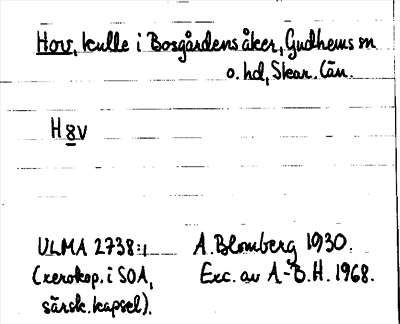 Hov, kulle i Bosgårdens åker, Gudhems sn
o. hd, Skar. län.
H8v
ULMA 2738:1 A. Blomberg 1930.
(xerokop. i SOA, Exc. av A.-B.H. 1968.
särsk. kapsel).